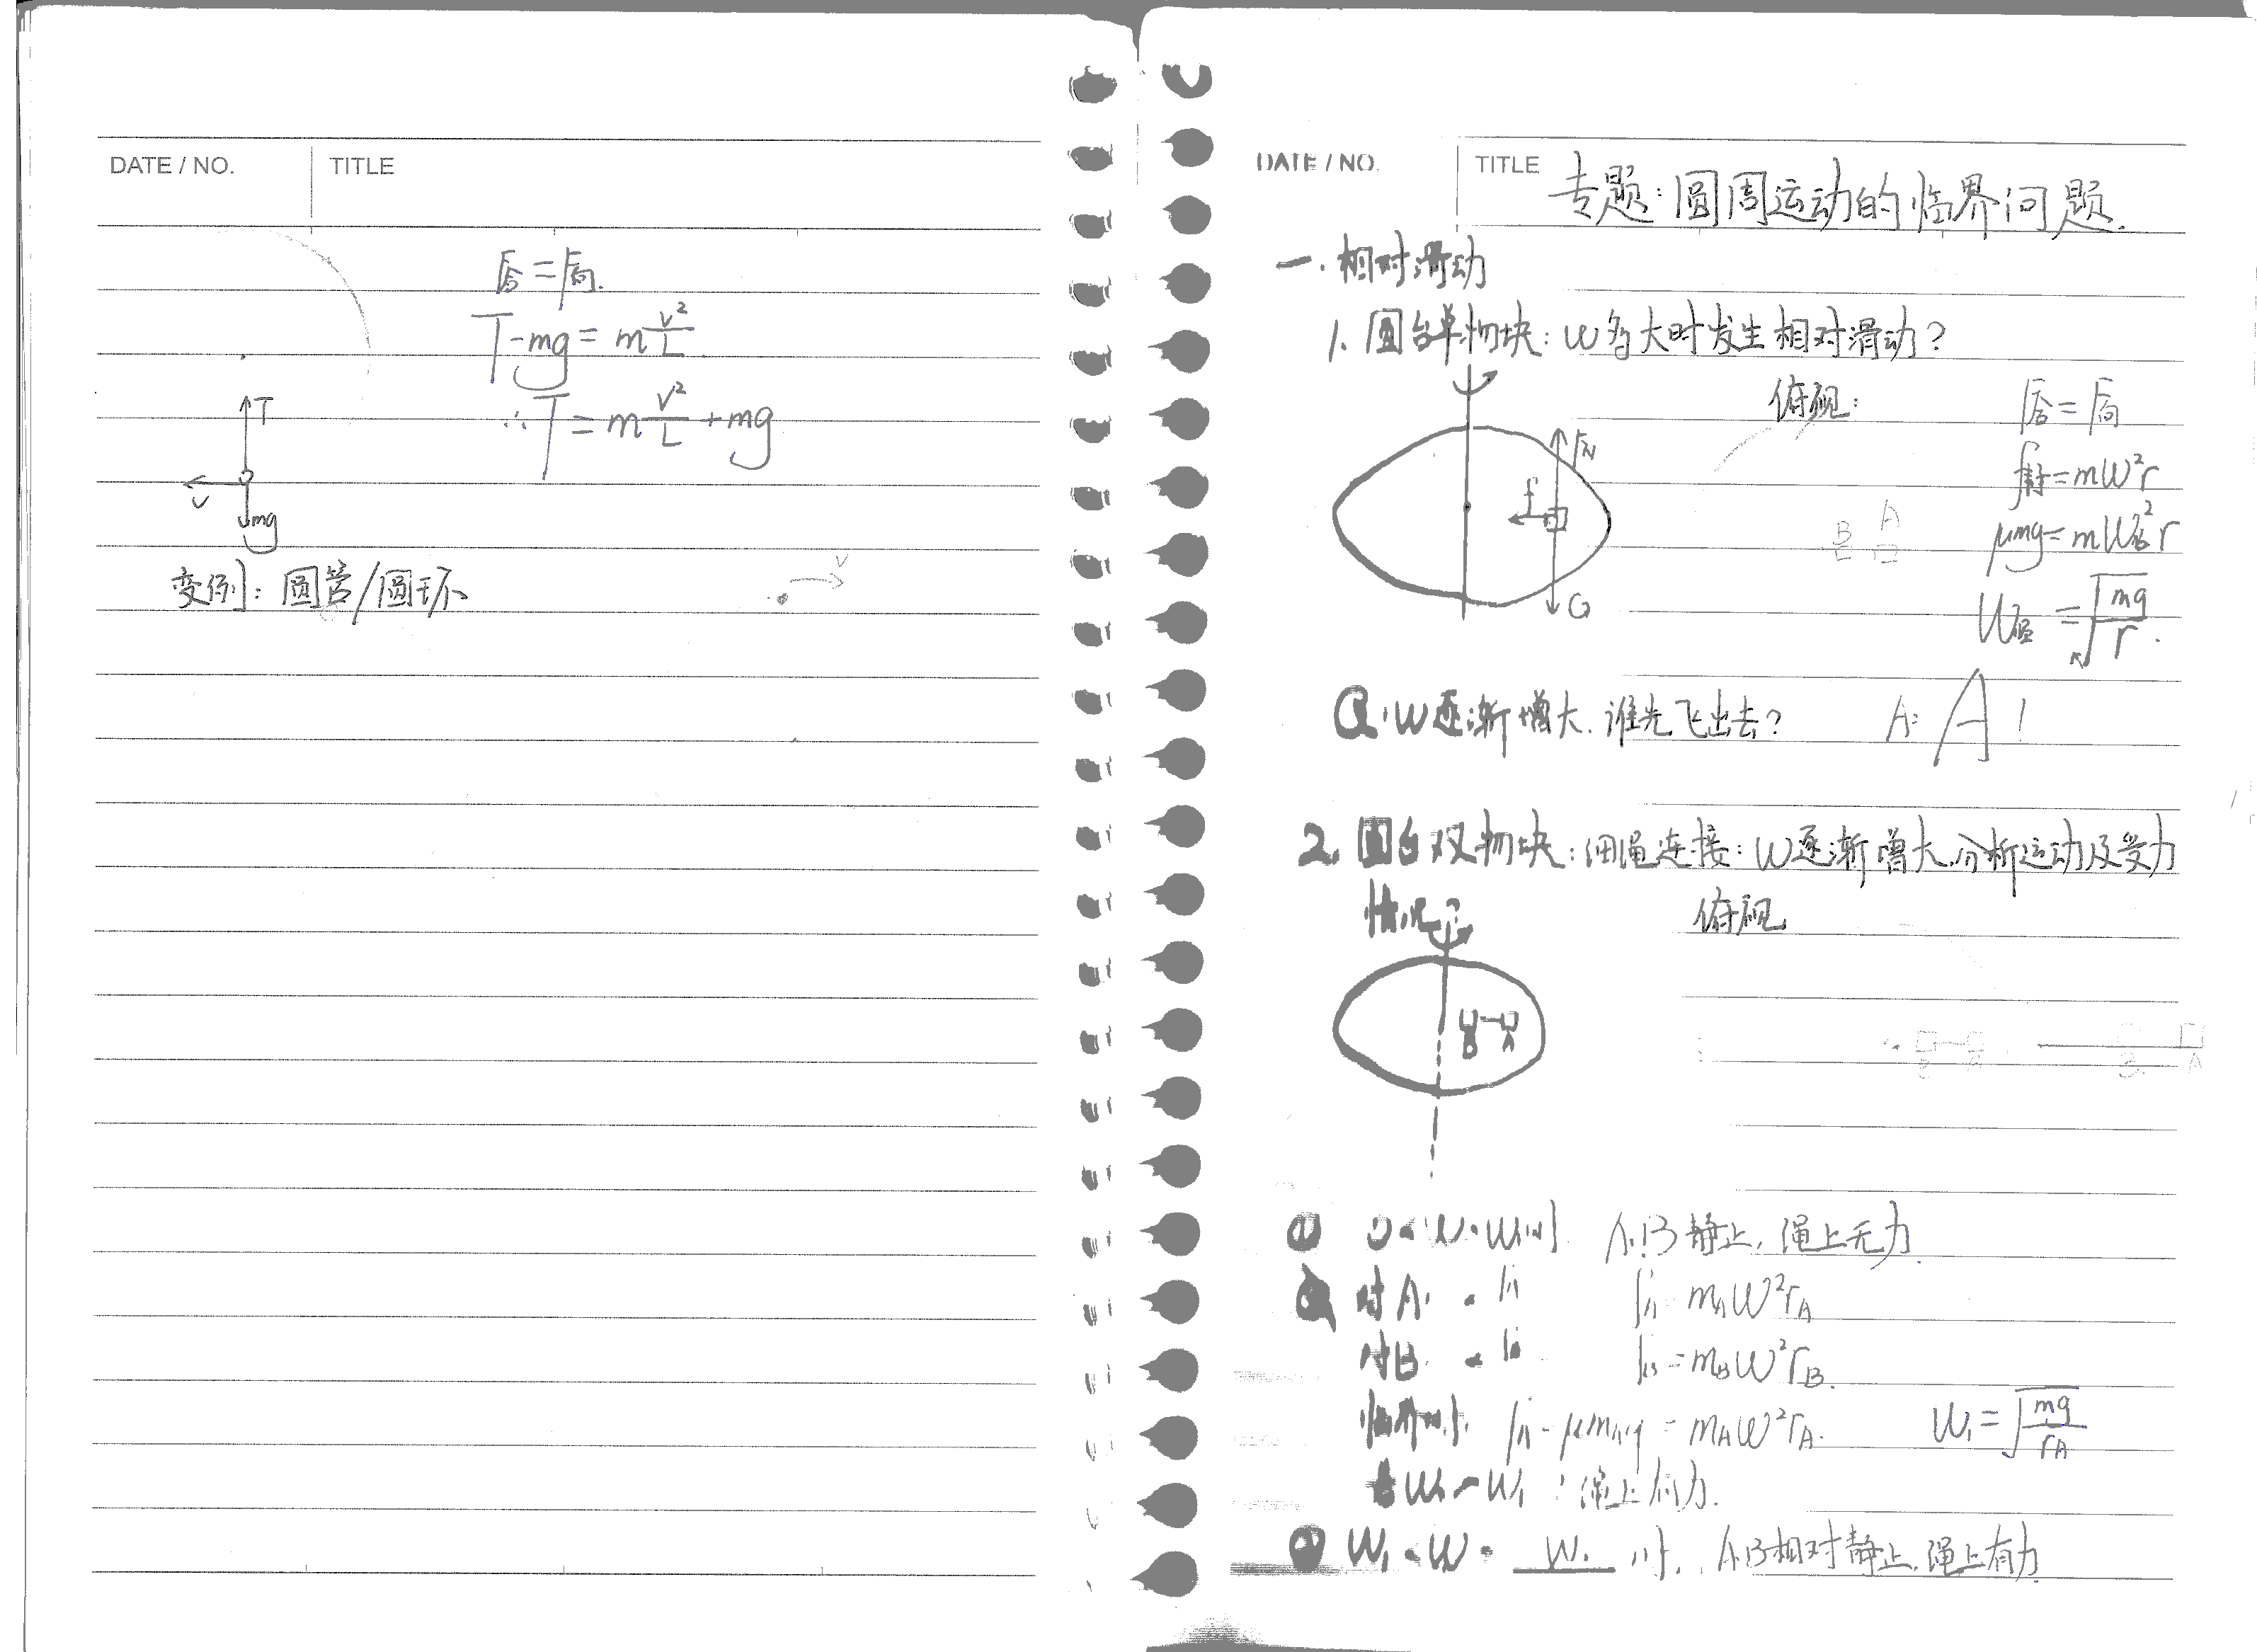 DATE / NO. TITLE
F合=F向.
T-mg=m v²/L
∴T=m v²/L+mg
T
v
mg
变例：圆管/圆环
v
DATE / NO. TITLE 专题：圆周运动的临界问题.
一.相对滑动
1.圆台单物块：W多大时发生相对滑动？
俯视：
F合=F向
f静=mW²r
μmg=mW临²r
W临=√(mg/r).
FN
f
G
B A
Q:W逐渐增大.谁先飞出去？ A: A！
2.圆台双物块：细绳连接：W逐渐增大.分析运动及受力
情况
俯视
B A
B A
B. A
① 0<W<W₁时. A.B静止，绳上无力.
对A: fA=mAW²rA
对B: fB=mBW²rB.
临界时: fA=μmAg=mAW²rA. W₁=√(mg/rA)
绳上有力.
② W₁<W< W₂ 时. A.B相对静止.绳上有力